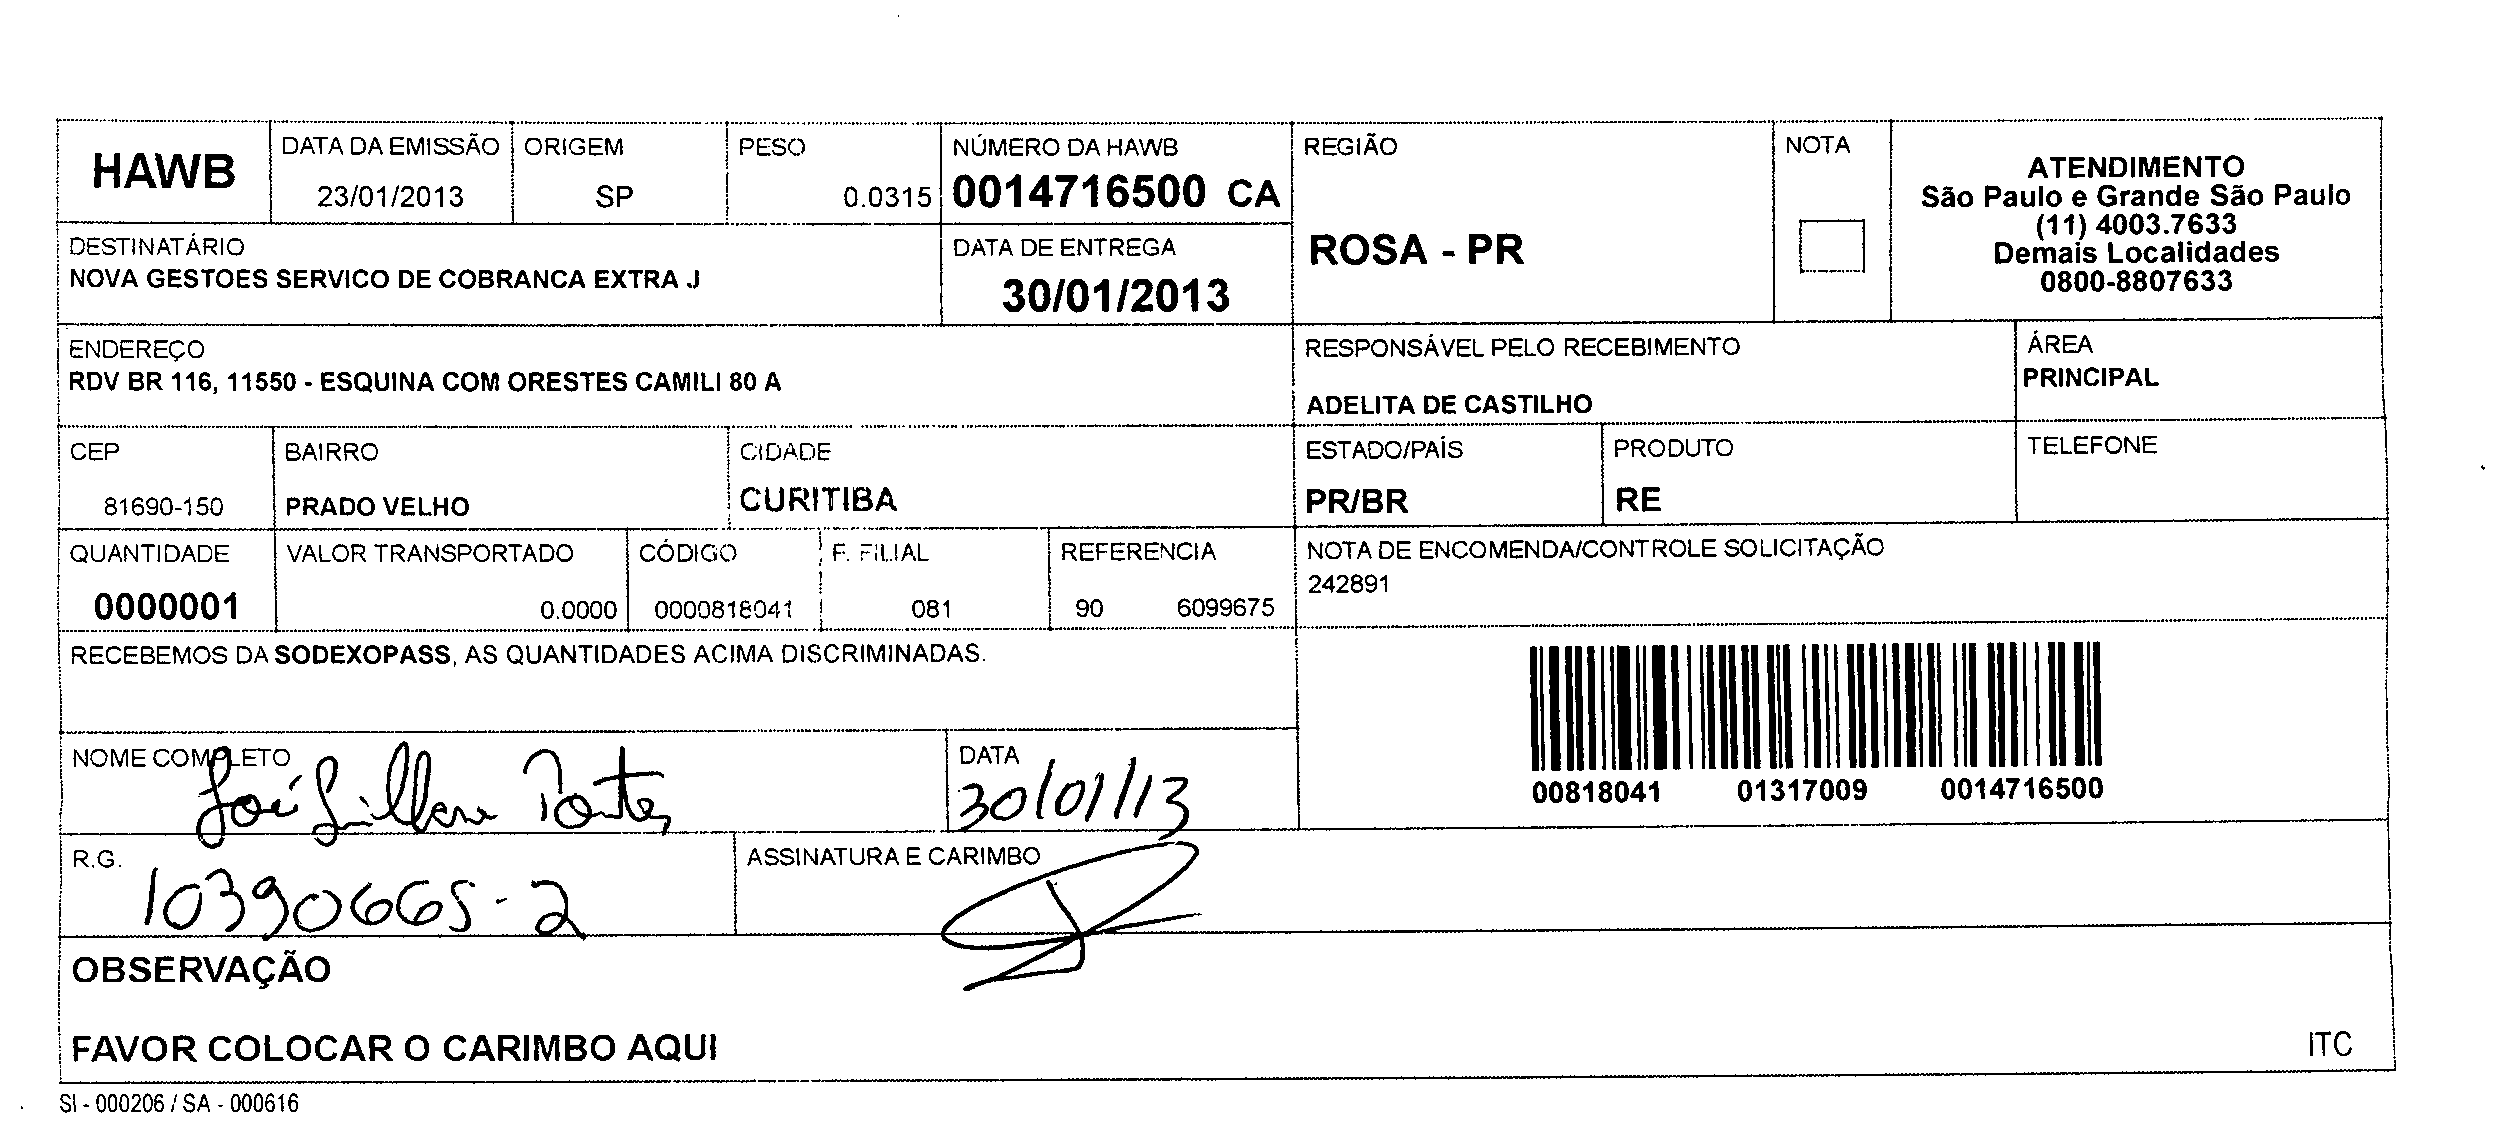 HAWB
DATA DA EMISSÃO
23/01/2013
ORIGEM
SP
PESO
0.0315
NÚMERO DA HAWB
0014716500 CA
REGIÃO
ROSA - PR
NOTA
ATENDIMENTO
São Paulo e Grande São Paulo
(11) 4003.7633
Demais Localidades
0800-8807633
DESTINATÁRIO
NOVA GESTOES SERVICO DE COBRANCA EXTRA J
DATA DE ENTREGA
30/01/2013
ENDEREÇO
RDV BR 116, 11550 - ESQUINA COM ORESTES CAMILI 80 A
RESPONSÁVEL PELO RECEBIMENTO
ADELITA DE CASTILHO
ÁREA
PRINCIPAL
CEP
81690-150
BAIRRO
PRADO VELHO
CIDADE
CURITIBA
ESTADO/PAÍS
PR/BR
PRODUTO
RE
TELEFONE
QUANTIDADE
0000001
VALOR TRANSPORTADO
0.0000
CÓDIGO
0000818041
F. FILIAL
081
REFERENCIA
90 6099675
NOTA DE ENCOMENDA/CONTROLE SOLICITAÇÃO
242891
RECEBEMOS DA SODEXOPASS, AS QUANTIDADES ACIMA DISCRIMINADAS.
00818041 01317009 0014716500
NOME COMPLETO
José
DATA
30/01/13
R.G.
10390665-2
ASSINATURA E CARIMBO
OBSERVAÇÃO
FAVOR COLOCAR O CARIMBO AQUI
ITC
SI - 000206 / SA - 000616